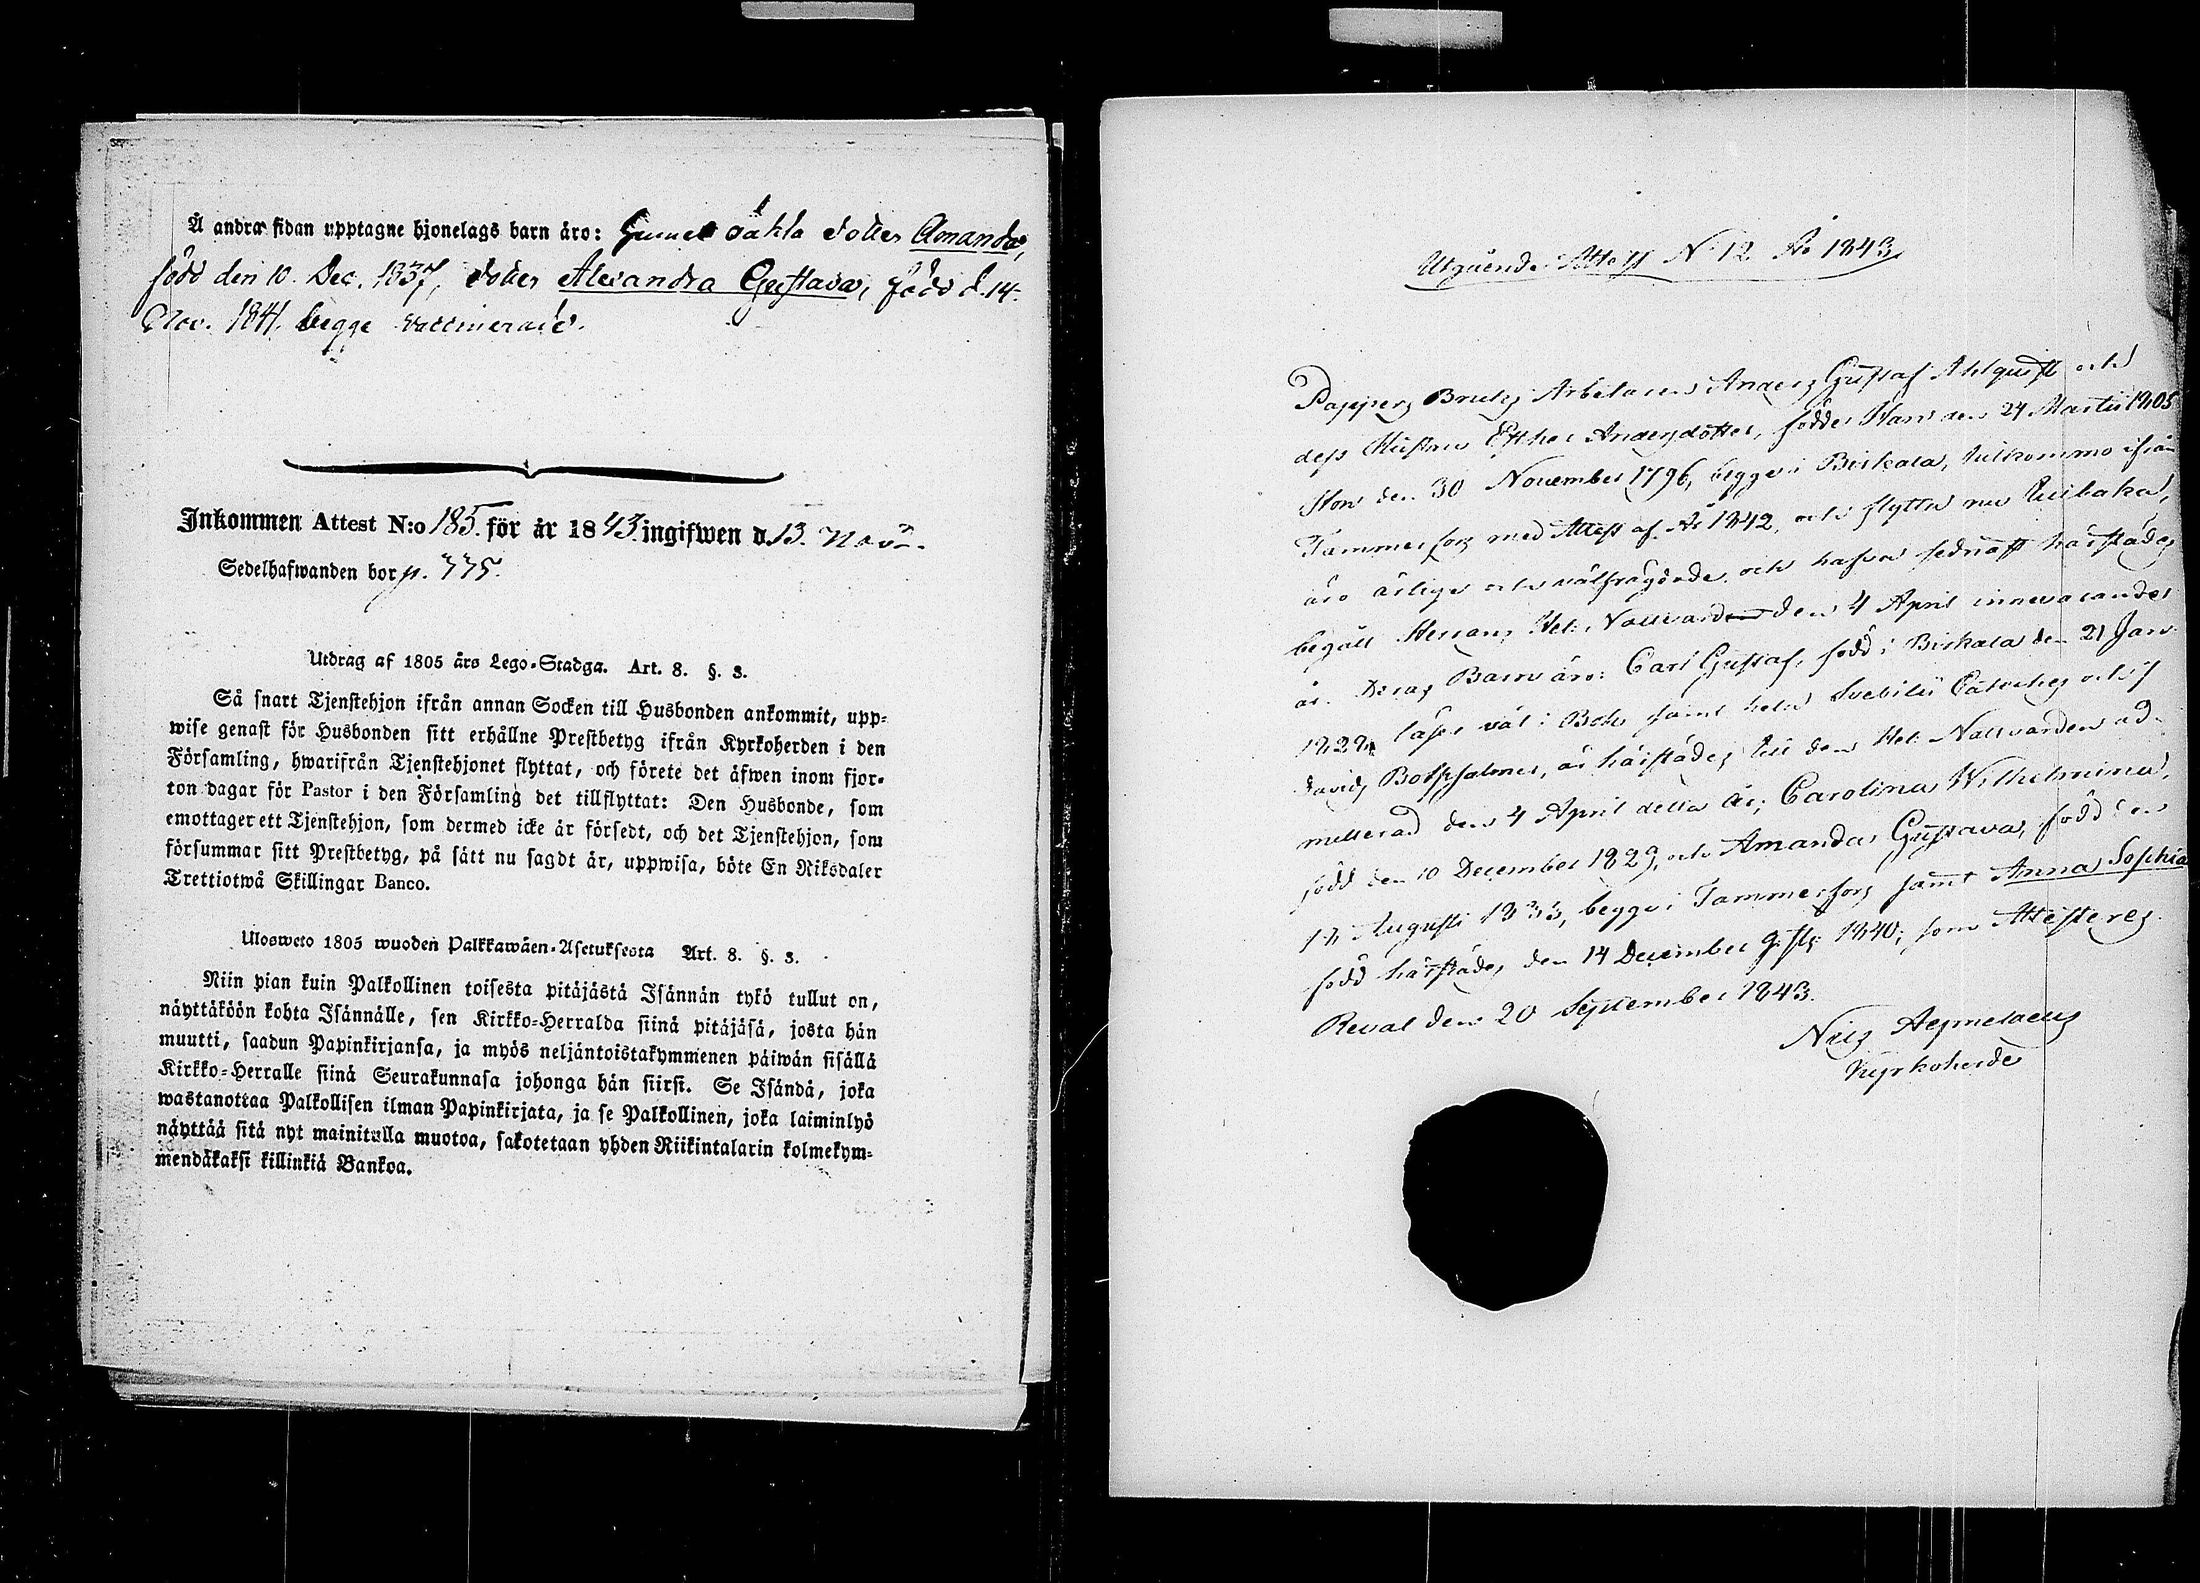 Å andra sidan upptagne hjonelags barn äro: oäkta dotter Amanda,
född den 10. Dec. 1837, dotter Alexandra Gustava, född d. 14.
Nov. 1841. begge vaccinerade.
Inkommen Attest N:o 185. för år 1843. ingifwen d. 13. Nov.
Sedelhafwanden bor p. 775.
Utdrag af 1805 års Lego-Stadga. Art. 8. §. 3.
Så snart Tjenstehjon ifrån annan Socken till Husbonden ankommit, upp-
wise genast för Husbonden sitt erhållne Prestbetyg ifrån Kyrkoherden i den
Församling, hwarifrån Tjenstehjonet flyttat, och förete det äfwen inom fjor-
ton dagar för Pastor i den Församling det tillflyttat: Den Husbonde, som
emottager ett Tjenstehjon, som dermed icke är försedt, och det Tjenstehjon, som
försummar sitt Prestbetyg, på sätt nu sagdt är, uppwisa, böte En Riksdaler
Trettiotwå Skillingar Banco.
Ulosweto 1805 wuoden Palkkawäen-Asetuksesta Art. 8. §. 3.
Niin pian kuin Palkollinen toisesta pitäjästä Isännän tykö tullut on,
näyttäköön kohta Isännälle, sen Kirkko-Herralda siinä pitäjäsä, josta hän
muutti, saadun Papinkirjansa, ja myös neljäntoistakymmenen päiwän sisällä
Kirkko-Herralle siinä Seurakunnasa johonga hän siirsi. Se Isändä, joka
wastanottaa Palkollisen ilman Papinkirjata, ja se Palkollinen, joka laiminlyö
näyttää sitä nyt mainitulla muotoa, sakotetaan yhden Riikintalarin kolmekym-
mendäkaksi killinkiä Bankoa.
Utgående Attest N 12 År 1843
Pappers Bruks Arbetaren Anders Gustaf Ahlquist och
dess Hustru Esther Andersdotter, födde Han den 24 Martii 1805
Hon den 30 November 1796, begge i Birkala, hitkommo ifrån
Tammerfors med Attest af År 1842, och flytta nu tillbaka,
äro ärliga och välfrägdade och hafva sednast härstädes
begått Herrans Hel. Nattvard den 4 April innevarande
år. Deras Barn äro: Carl Gustaf, född i Birkala den 21 Jan.
1828, läser väl i Bok samt hela Svebilii Cateches och
Davids Botpsalmer, är härstädes till den Hel. Nattvarden ad-
mitterad den 4 April detta år; Carolina Wilhelmina,
född den 10 December 1829, och Amanda Gustava, född den
18 Augusti 1833, begge i Tammerfors samt Anna Sophia
född härstädes den 14 December g. st. 1840; som Attesteras.
Reval den 20 September 1843.
Nils Aejmelaeus
Kyrkoherde